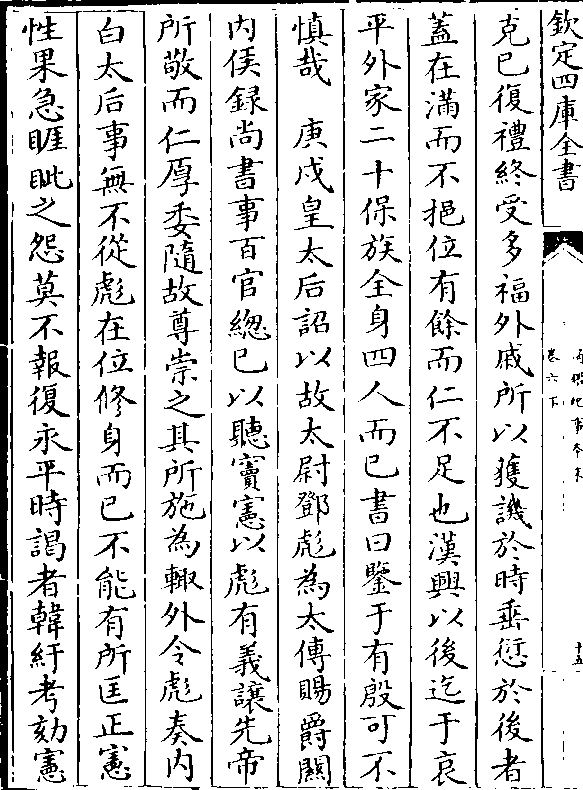 欽定四庫全書
卷六下
十五
克已復禮終受多福外戚所以獲譏於時垂愆於後者
蓋在滿而不挹位有餘而仁不足也漢興以後迄于哀
平外家二十保族全身四人而已書曰鑒于有殷可不
慎哉　庚戌皇太后詔以故太尉鄧彪為太傅賜爵關
内侯録尚書事百官總已以聽竇憲以彪有義讓先帝
所敬而仁厚委隨故尊崇之其所施為輙外令彪奏内
白太后事無不從彪在位修身而已不能有所匡正憲
性果急睚眦之怨莫不報復永平時謁者韓紆考劾憲